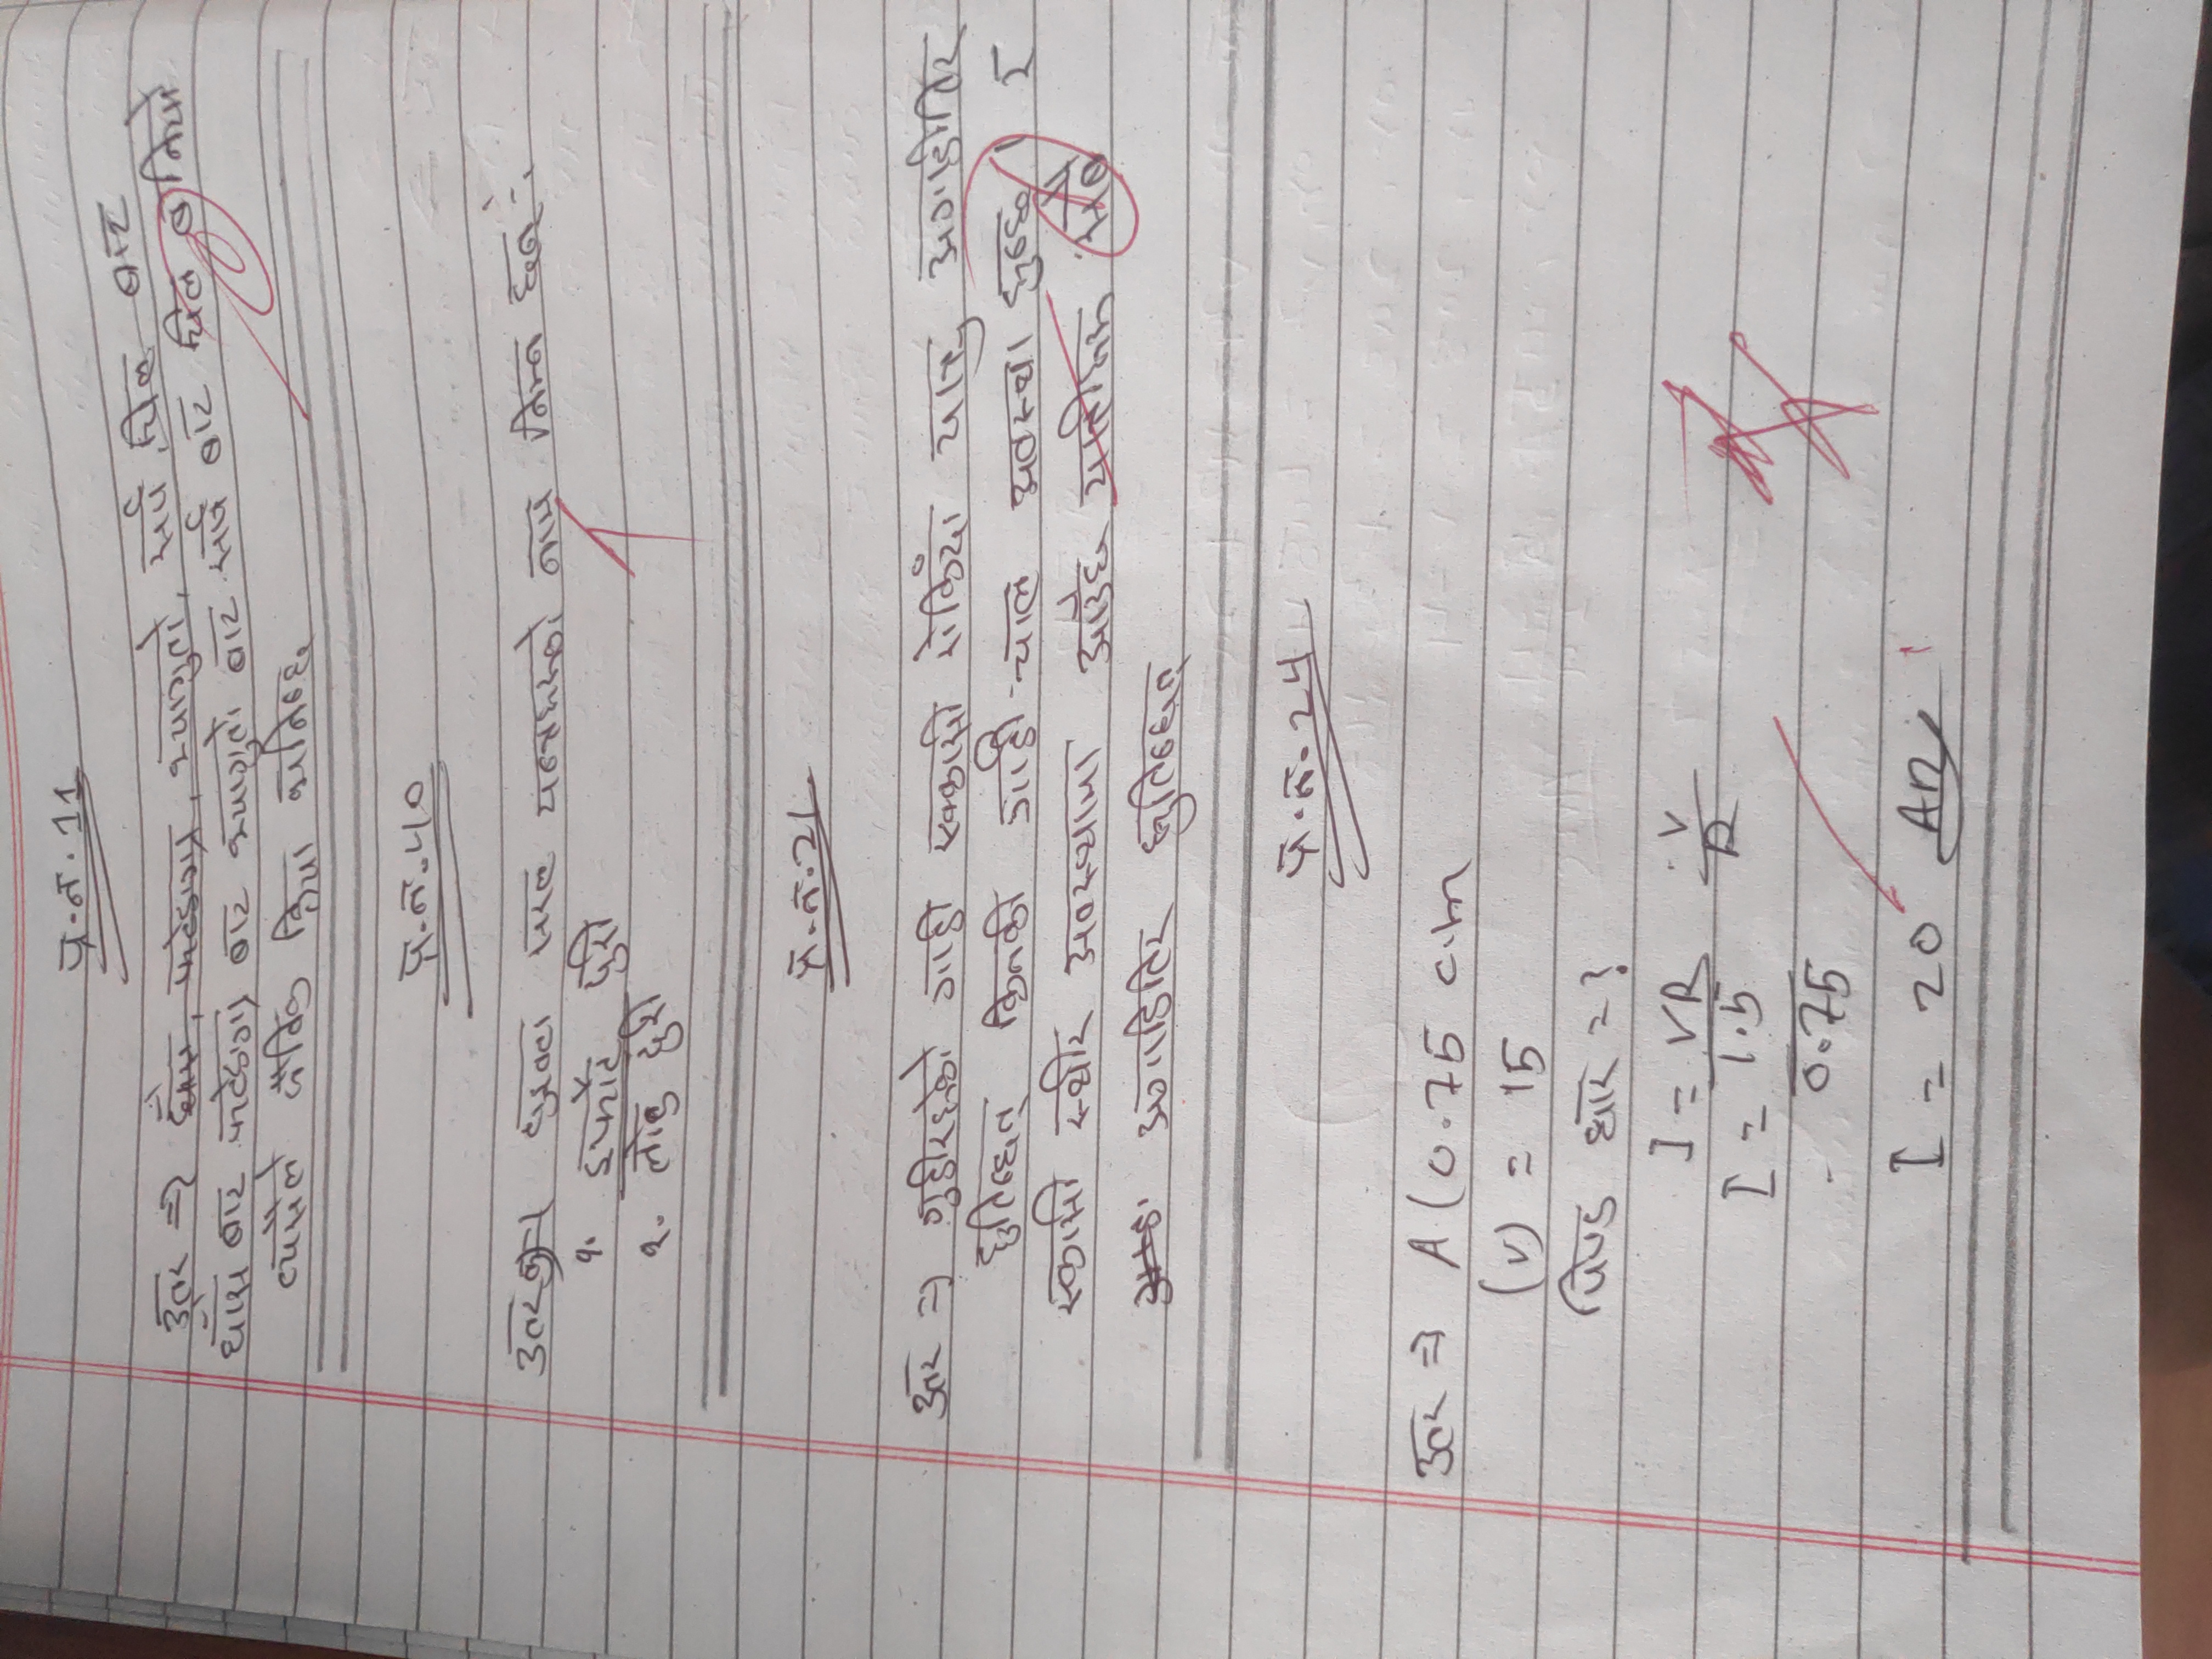 प्र.न. 11
उत्तर ⇒ घाँस, फटेङग्रा, भ्यागुतो, सर्प, चिल बाट
घाँस बाट फटेङग्रा बाट भ्यागुतो बाट सर्प बाट चिल बनियो
त्यसैले जैविक क्रिया भनिन्छ
प्र.न.40
उत्तर दुइवटा सरल यन्त्रहरुको नाम निम्न छन् :
१. इफोर्ट दुरी
२. लोड दुरी
प्र.न.21
उत्तर ⇒ गुडीरहेको गाडी एक्कासी रोकिँदा यात्रु अगाडीतिर
हुतिन्छन् किनकी गाडी चाल अवस्था हुन्छ । र
एकासी स्थीर अवस्थामा आउँछ सबै
अगाडितिर हुतिन्छन्
प्र.न.24
उत्तर ⇒ A (0.75 cm
(v) = 15
पिण्ड धार = ?
I = VR V
R
I = 1.5
0.75
I = 20 An